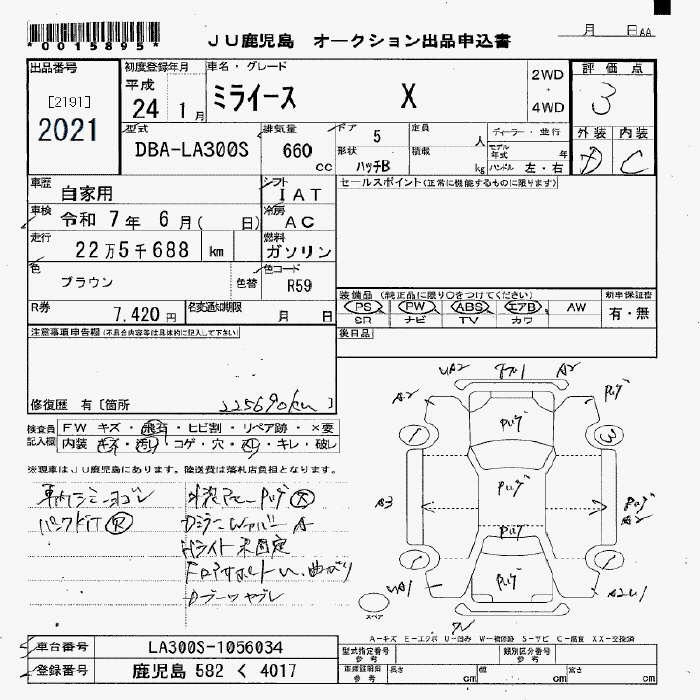 *0015895*
JU鹿児島 オークション出品申込書
月 日 AA
出品番号
[2191]
2021
初度登録年月
平成
24 1月
車名・グレード
ミライース X
2WD
・
4WD
評価点
3
外装 内装
D C
型式
DBA-LA300S
排気量
660 cc
ドア 5
形状 ハッチB
定員 人
積載 kg
ディーラー・並行
モデル年式 年
ハンドル 左・右
車歴
自家用
シフト
IAT
セールスポイント(正常に機能するものに限ります)
車検 令和 7年 6月( 日)
冷房
AC
走行
22万5千688 km
燃料
ガソリン
色
ブラウン
色替
色コード
R59
R券
7,420円
名変通知期限
月 日
装備品(純正品に限り○をつけてください)
PS PW ABS エアB AW
SR ナビ TV カワ
新車保証書
有・無
注意事項申告欄(不具合内容等は具体的に記入して下さい)
後日品
修復歴 有〔箇所 225690km 〕
検査員記入欄
FW キズ・飛石・ヒビ割・リペア跡・×要
内装・キズ・汚れ・コゲ・穴・スレ・キレ・破レ
※現車はJU鹿児島にあります。陸送費は落札店負担となります。
車内シミ・ヨゴレ
パンクキット
Hライト未固定
Dブーツヤブレ
UA2 A2
A2
1 3
A3
A2
1 1
UA1 A2U1
スペア
A-キズ E-エクボ U-凹み W-補修跡 S-サビ C-腐食 XX-交換済
車台番号 LA300S-1056034
登録番号 鹿児島 582 く 4017
型式指定番号 参考
類別区分番号 参考
車検証明書 参考
長さ cm 幅 cm 高さ cm